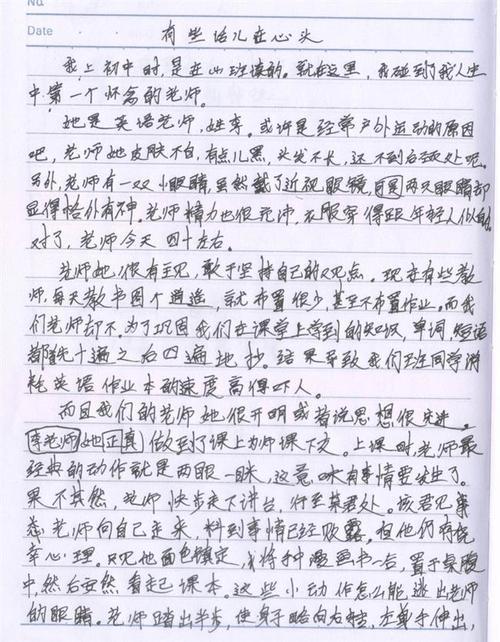 No.
Date
有些话儿在心头
我上初中时,是在山班读的。就在这里,我碰到了我人生
中第一个怀念的老师。
她是英语老师,姓李。或许是经常户外运动的原因
吧,老师她皮肤不白,有点儿黑,头发不长,还不到后颈处呢。
另外,老师有一双小眼睛,虽然戴了近视眼镜,但两只眼睛都
显得格外有神。老师精力也很充沛,衣服穿得跟年轻人似的。
对了,老师今天四十左右。
老师她很有主见,敢于坚持自己的观点。现在有些教
师,每天教书图个逍遥,就布置很少,甚至不布置作业。而我
们老师却不。为了巩固我们在课堂上学到的知识,单词,短语
都先十遍之后四遍地抄。结果导致我们班同学消
耗英语作业本的速度高得吓人。
而且我们的老师她很开明或者说思想很先进。
李老师她正真做到了课上为师课下友。上课时,老师最
经典的动作就是两眼一眯,这竟味有事情要发生了。
果不其然,老师快步走下讲台,行至某君处。该君见
老师向自己走来,料到事情已经败露。但他仍有侥
幸心理。只见他面色镇定,将手中漫画书一合,置于桌腹
中,然后安然看起课本。这些小动作怎么能逃出老师
的眼睛。老师踏出半步,使身子略向右转,左单手伸出,